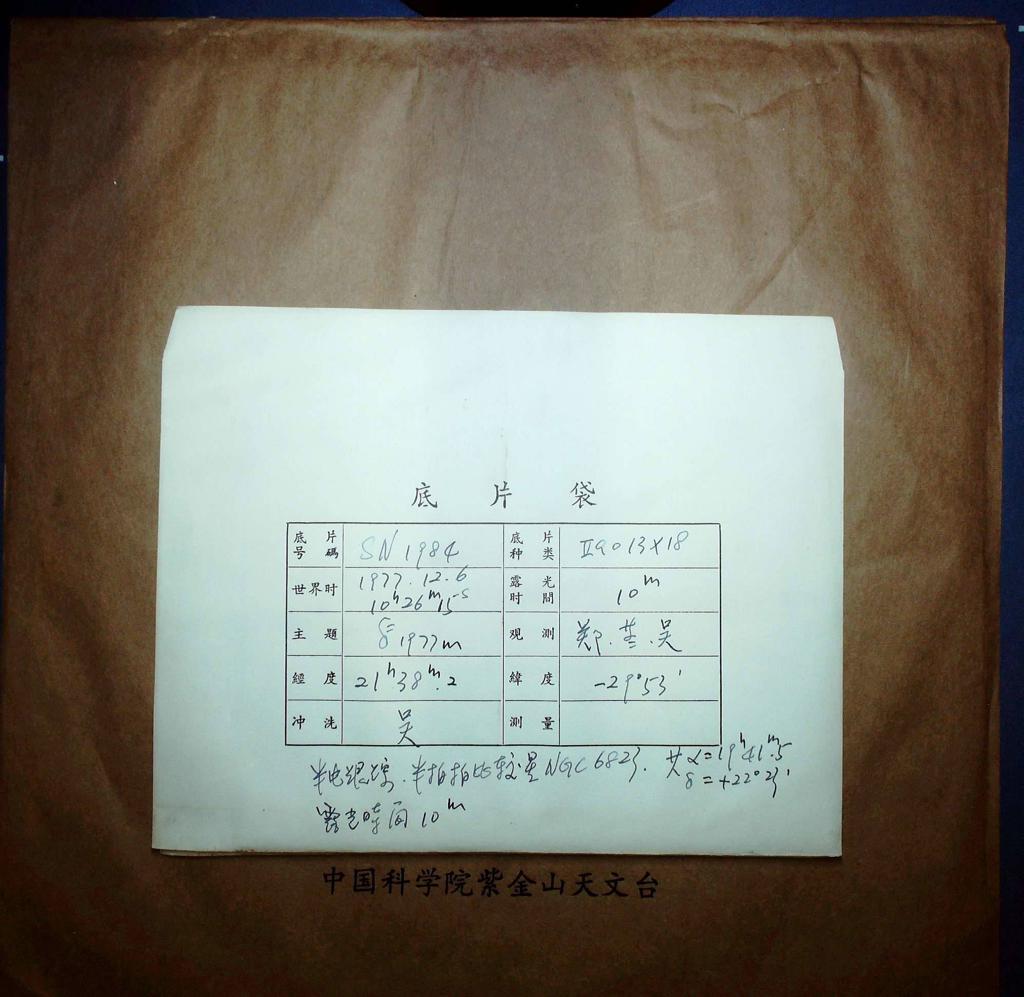 底 片 袋
底片号碼 SN 1984 底片种类 IIaO 13×18
世界时 1977.12.6 10ʰ26ᵐ15ˢ 露光时間 10ᵐ
主題 1977m 观測 郑. 吴
經度 21ʰ38ᵐ.2 緯度 -29°53′
冲洗 吴 測量
半 跟踪. 半拍拍比较星 NGC 6823. α=19ʰ41ᵐ.5
δ=+22°23′
露光時间 10ᵐ
中国科学院紫金山天文台